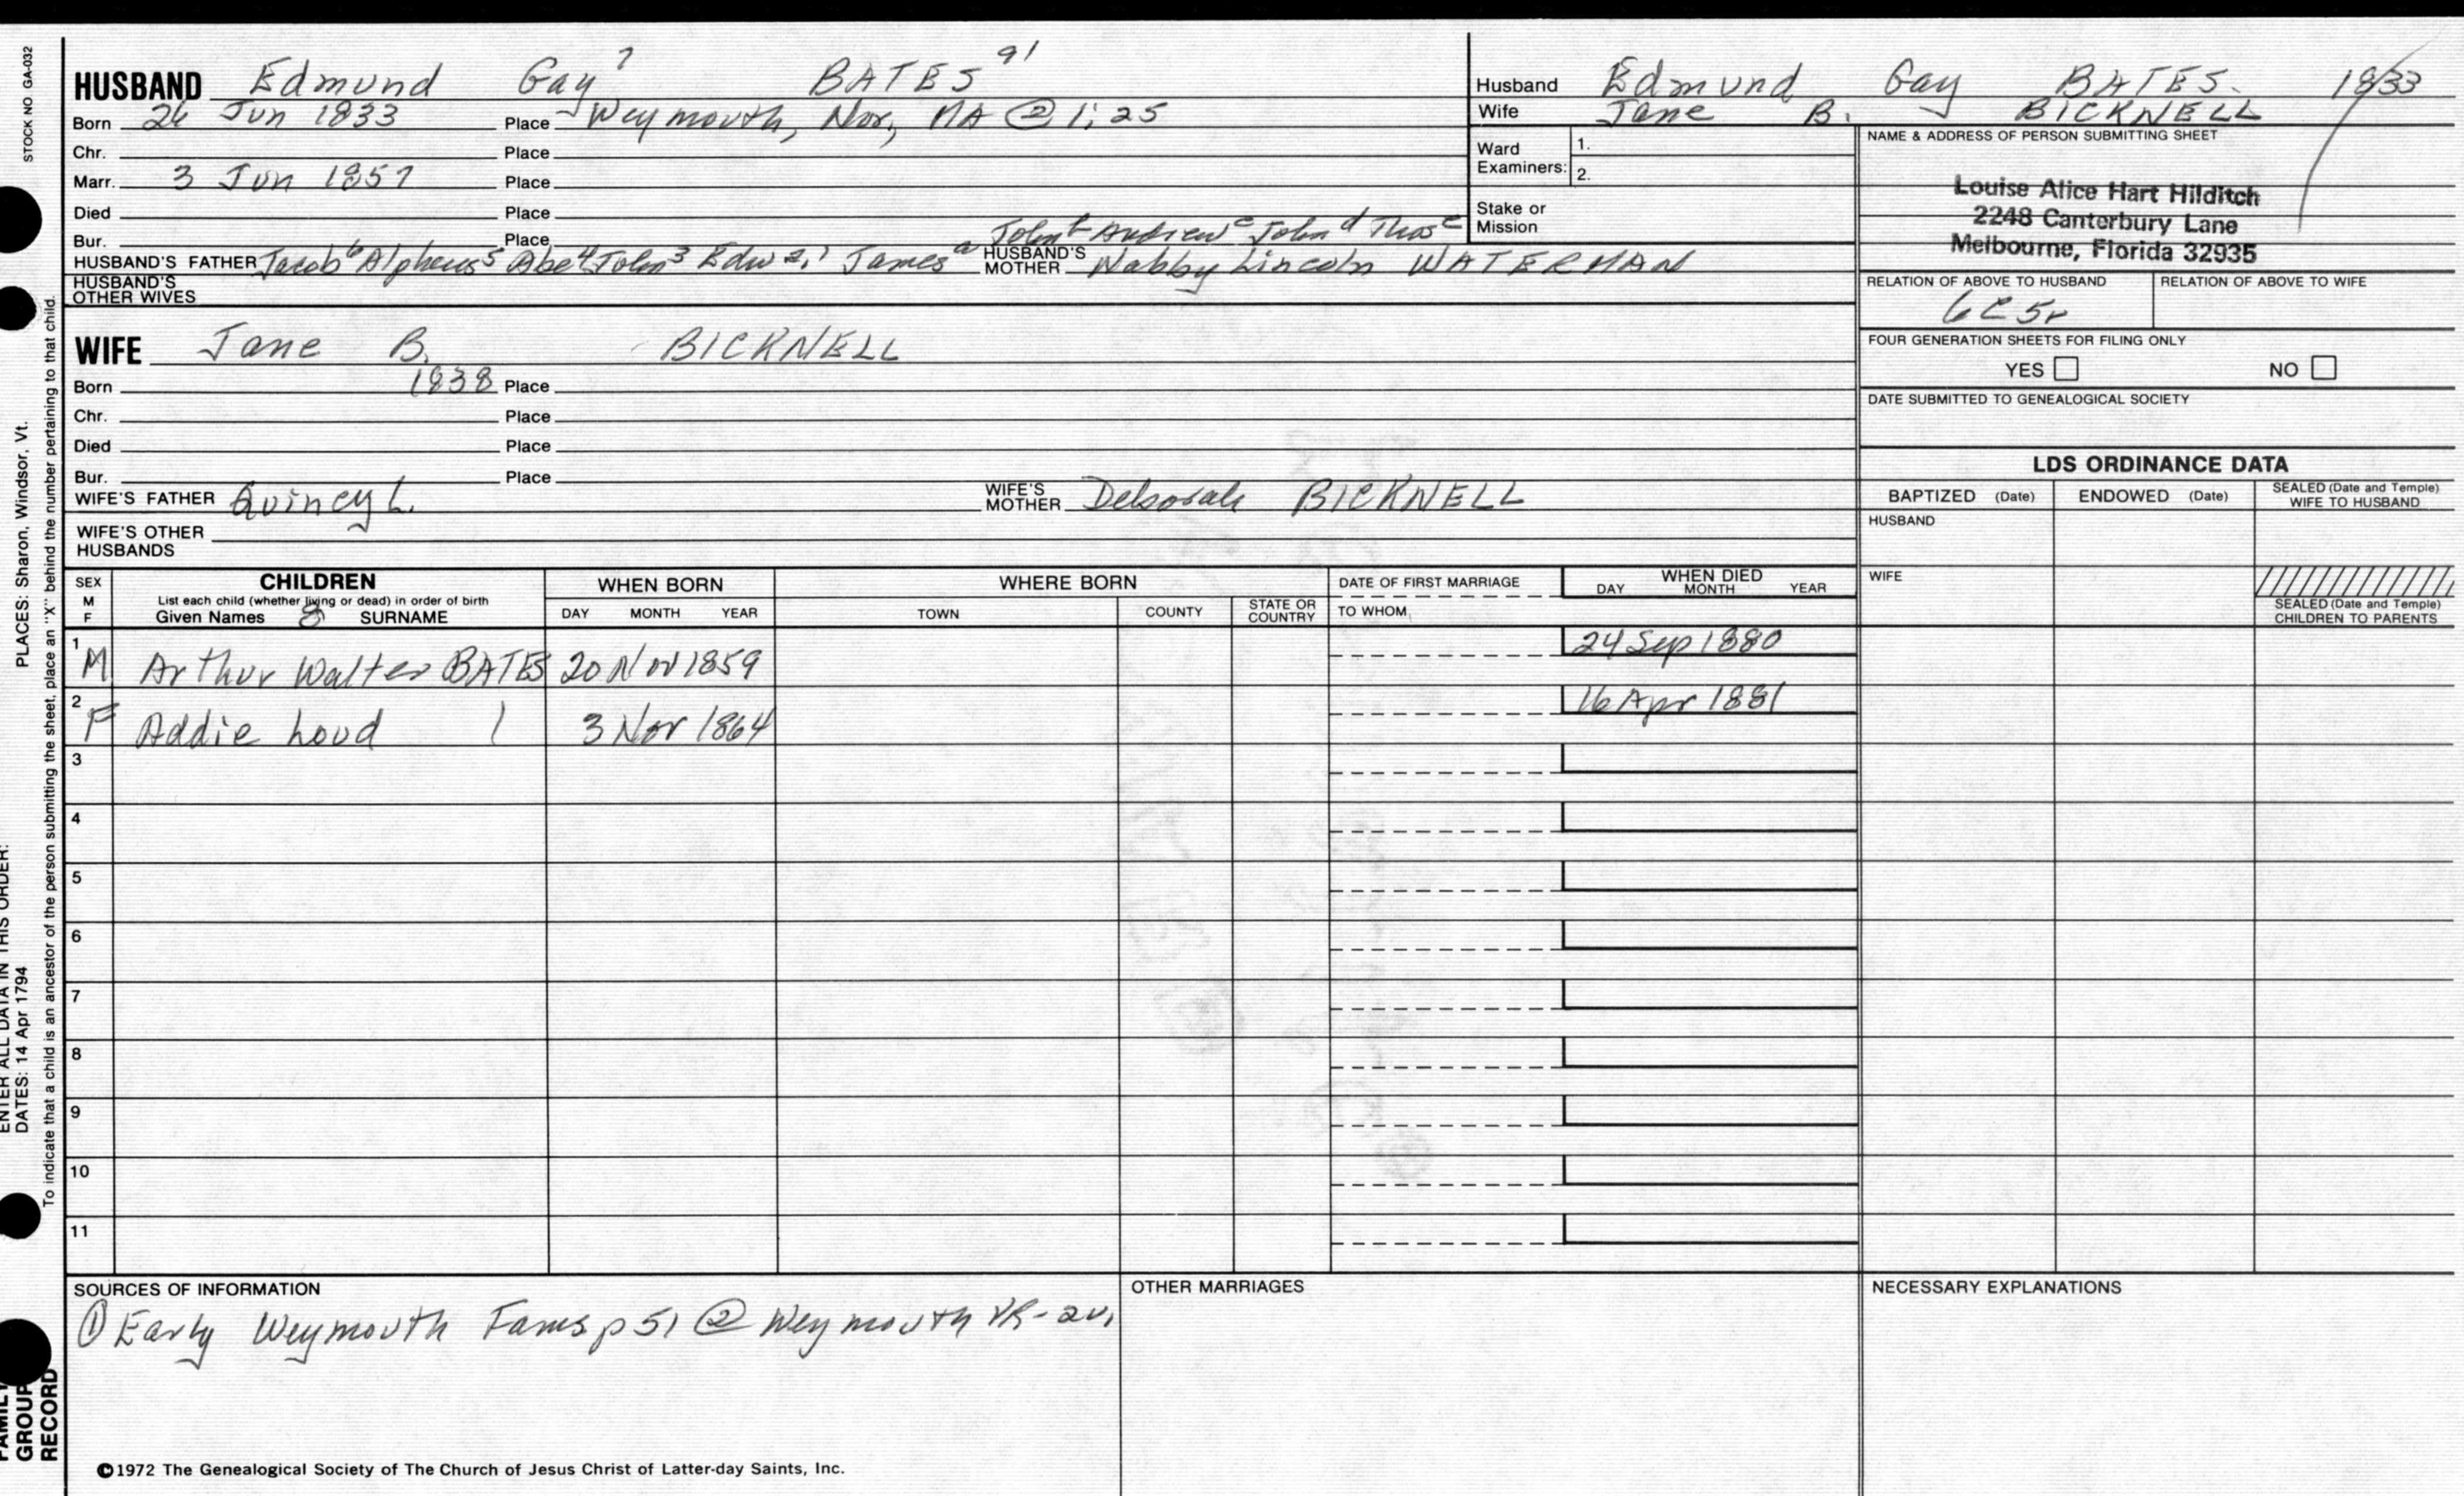 STOCK NO GA-032
HUSBAND Edmund Gay 7 BATES 91
Born 26 Jun 1833 Place Weymouth, Nor, MA @ 1; 25
Chr. Place
Marr. 3 Jun 1857 Place
Died Place
Bur. Place John b Andrew c John d Thos e
HUSBAND'S FATHER Jacob 6 Alpheus 5 Abe 4 John 3 Edw 2,1 James a HUSBAND'S MOTHER Nabby Lincoln WATERMAN
HUSBAND'S OTHER WIVES
WIFE Jane B. BICKNELL
Born 1838 Place
Chr. Place
Died Place
Bur. Place
WIFE'S FATHER Quincy L. WIFE'S MOTHER Deborah BICKNELL
WIFE'S OTHER HUSBANDS
Husband Edmund Gay BATES. 1833
Wife Jane B. BICKNELL
Ward Examiners: 1. 2.
Stake or Mission
NAME & ADDRESS OF PERSON SUBMITTING SHEET
Louise Alice Hart Hilditch
2248 Canterbury Lane
Melbourne, Florida 32935
RELATION OF ABOVE TO HUSBAND RELATION OF ABOVE TO WIFE
6C 5r
FOUR GENERATION SHEETS FOR FILING ONLY
YES NO
DATE SUBMITTED TO GENEALOGICAL SOCIETY
LDS ORDINANCE DATA
BAPTIZED (Date) ENDOWED (Date) SEALED (Date and Temple) WIFE TO HUSBAND
HUSBAND
WIFE
SEALED (Date and Temple) CHILDREN TO PARENTS
SEX M F CHILDREN WHEN BORN WHERE BORN DATE OF FIRST MARRIAGE WHEN DIED
List each child (whether living or dead) in order of birth
Given Names 8 SURNAME DAY MONTH YEAR TOWN COUNTY STATE OR COUNTRY TO WHOM DAY MONTH YEAR
1 M Arthur Walter BATES 20 Nov 1859 24 Sep 1880
2 F Addie Loud 3 Nov 1864 16 Apr 1881
3
4
5
6
7
8
9
10
11
SOURCES OF INFORMATION
① Early Weymouth Fams p 51 ② Weymouth VR-2v,
OTHER MARRIAGES
NECESSARY EXPLANATIONS
©1972 The Genealogical Society of The Church of Jesus Christ of Latter-day Saints, Inc.
PLACES: Sharon, Windsor, Vt.
ENTER ALL DATA IN THIS ORDER:
DATES: 14 Apr 1794
To indicate that a child is an ancestor of the person submitting the sheet, place an "X" behind the number pertaining to that child.
FAMILY
GROUP
RECORD